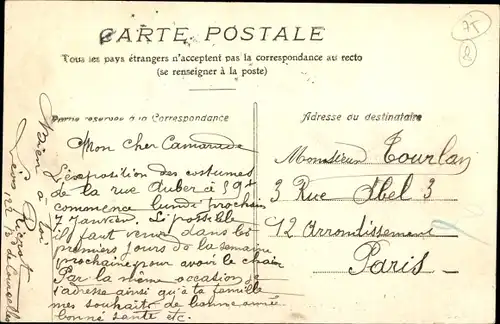 CARTE POSTALE
Tous les pays étrangers n'acceptent pas la correspondance au recto
(se renseigner à la poste)
Partie réservée à la Correspondance
Adresse du destinataire
Mon cher Camarade
L'exposition des costumes
de la rue Auber à 39f
commence lundi prochain
7 Janvier. Si possible
il faut venir dans les
premiers jours de la semaine
prochaine pour avoir le choix
Par la même occasion je
t'adresse ainsi qu'à ta famille
mes souhaits de bonne année
bonne santé etc.
Bien à toi
Monsieur Tourlan
3 Rue Abel 3
12 Arrondissement
Paris